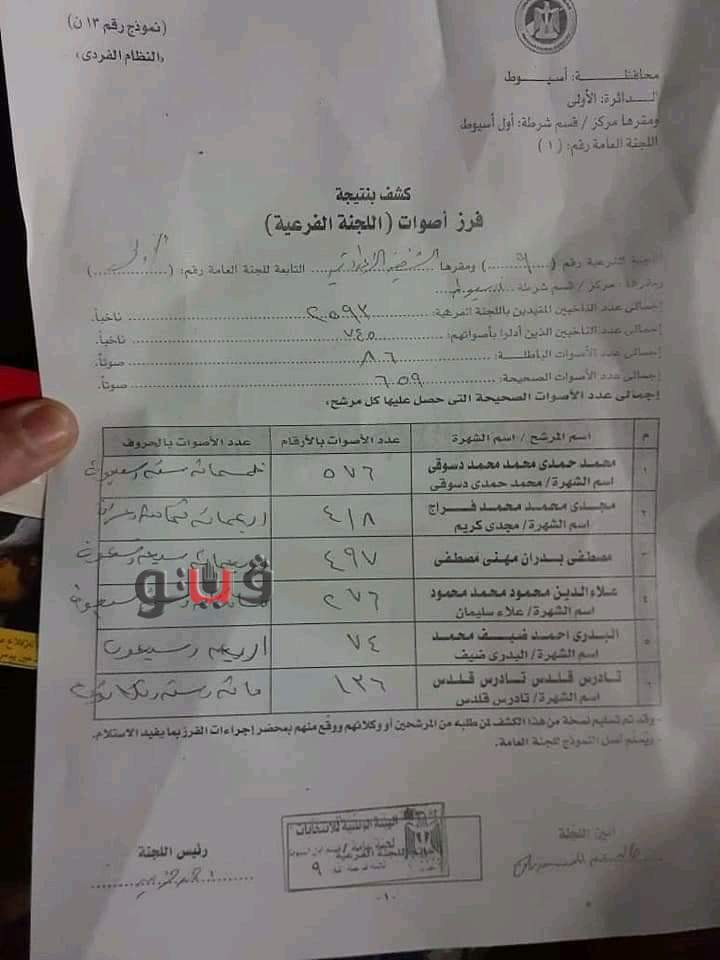 (نموذج رقم ١٣ ن)
«النظام الفردى»
محافظة: أسيوط
الدائرة: الأولى
ومقرها مركز / قسم شرطة: أول أسيوط
اللجنة العامة رقم: (١)
كشف بنتيجة
فرز أصوات (اللجنة الفرعية)
اللجنة الفرعية رقم (٩) ومقرها التابعة للجنة العامة رقم: (الأولى)
ومقرها: مركز / قسم شرطة
إجمالى عدد الناخبين المقيدين باللجنة الفرعية: ٢٥٩٣ ناخباً.
إجمالى عدد الناخبين الذين أدلوا بأصواتهم: ٧٤٥ ناخباً.
إجمالى عدد الأصوات الباطلة: ٨٦ صوتاً.
إجمالى عدد الأصوات الصحيحة: ٦٥٩ صوتاً.
إجمالى عدد الأصوات الصحيحة التى حصل عليها كل مرشح:
م اسم المرشح / اسم الشهرة عدد الأصوات بالأرقام عدد الأصوات بالحروف
١ محمد حمدى محمد محمد دسوقى ٥٧٦ خمسمائة ستة وسبعون
اسم الشهرة / محمد حمدى دسوقى
٢ مجدى محمد محمد فراج ٤١٨ اربعمائة ثمانية عشر
اسم الشهرة / مجدى كريم
٣ مصطفى بدران مهنى مصطفى ٤٩٧ وتسعون
٤ علاء الدين محمود محمد محمود ٢٧٦ وسبعون
اسم الشهرة / علاء سليمان
٥ البدرى احمد ضيف محمد ٧٤ اربعة وسبعون
اسم الشهرة / البدرى ضيف
٦ تادرس قلدس تادرس قلدس ١٣٦ مائة وستة وثلاثون
اسم الشهرة / تادرس قلدس
ڤيتو
- وقد تم تسليم نسخة من هذا الكشف لمن طلبه من المرشحين أو وكلائهم ووقع منهم بمحضر إجراءات الفرز بما يفيد الاستلام.
- ويسلم أصل النموذج للجنة العامة.
أمين اللجنة
رئيس اللجنة
الهيئة الوطنية للانتخابات
اللجنة الفرعية
٩
-١-